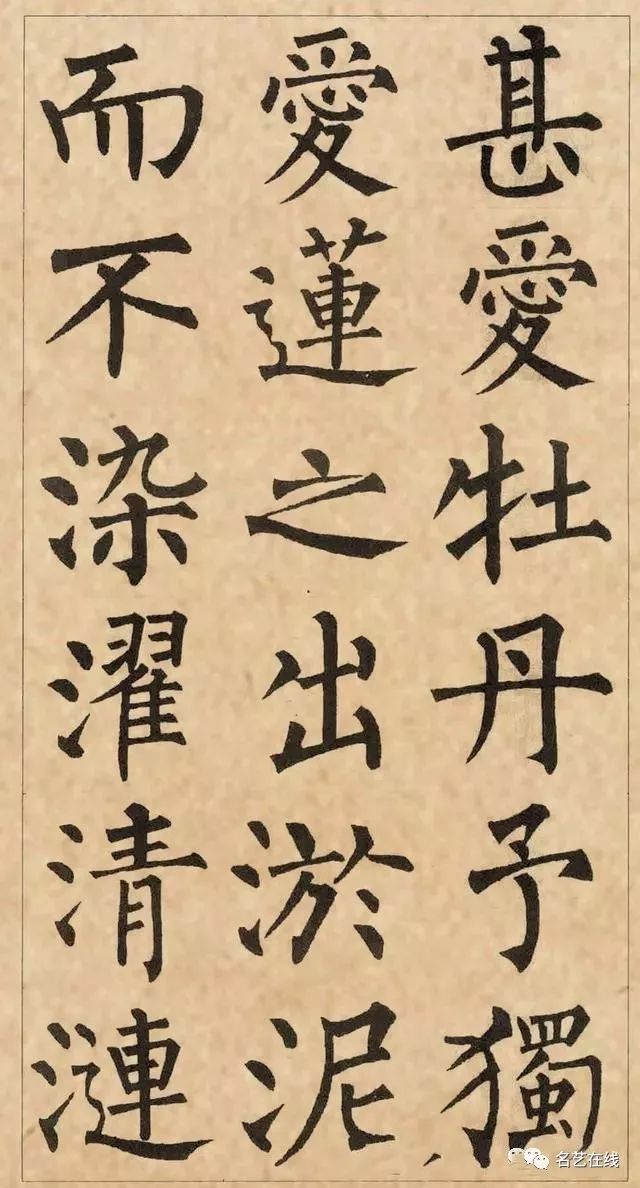 甚愛牡丹予獨
愛蓮之出淤泥
而不染濯清漣
名艺在线